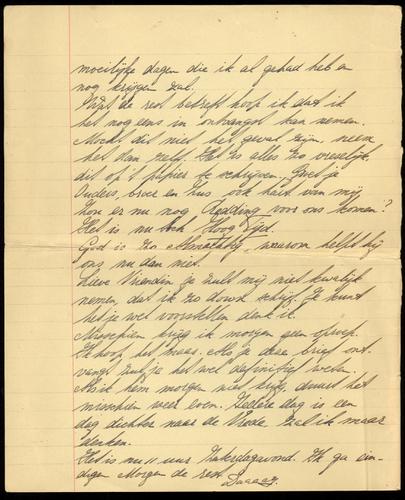 moeilijke dagen die ik al gehad heb en
nog krijgen zal.
Wat de rest betreft hoop ik dat ik
het nog eens in ontvangst kan nemen.
Mocht dit niet het geval zijn, neem
het dan zelf. Het is alles zo vreselijk,
dit op 't papier te schrijven. Groet je
Ouders, broer en zus ook hard van mij
Zou er nu nog Redding voor ons komen?
Het is nu toch Hoog Tijd.
God is zo Almachtig, waarom helpt hij
ons nu dan niet.
Lieve Vriendin je zult mij niet kwalijk
nemen, dat ik zo down schrijf. Je kunt
het je wel voorstellen denk ik.
Misschien krijg ik morgen geen oproep.
Ik hoop het maar. Als je deze brief ont-
vangt zul je het wel definitief weten.
Als ik hem morgen niet krijg, duurt het
misschien weer even. Iedere dag is een
dag dichter naar de Vrede zal ik maar
denken.
Het is nu 11 uur Zaterdagavond. Ik ga ein-
digen Morgen de rest.
Daaaag.